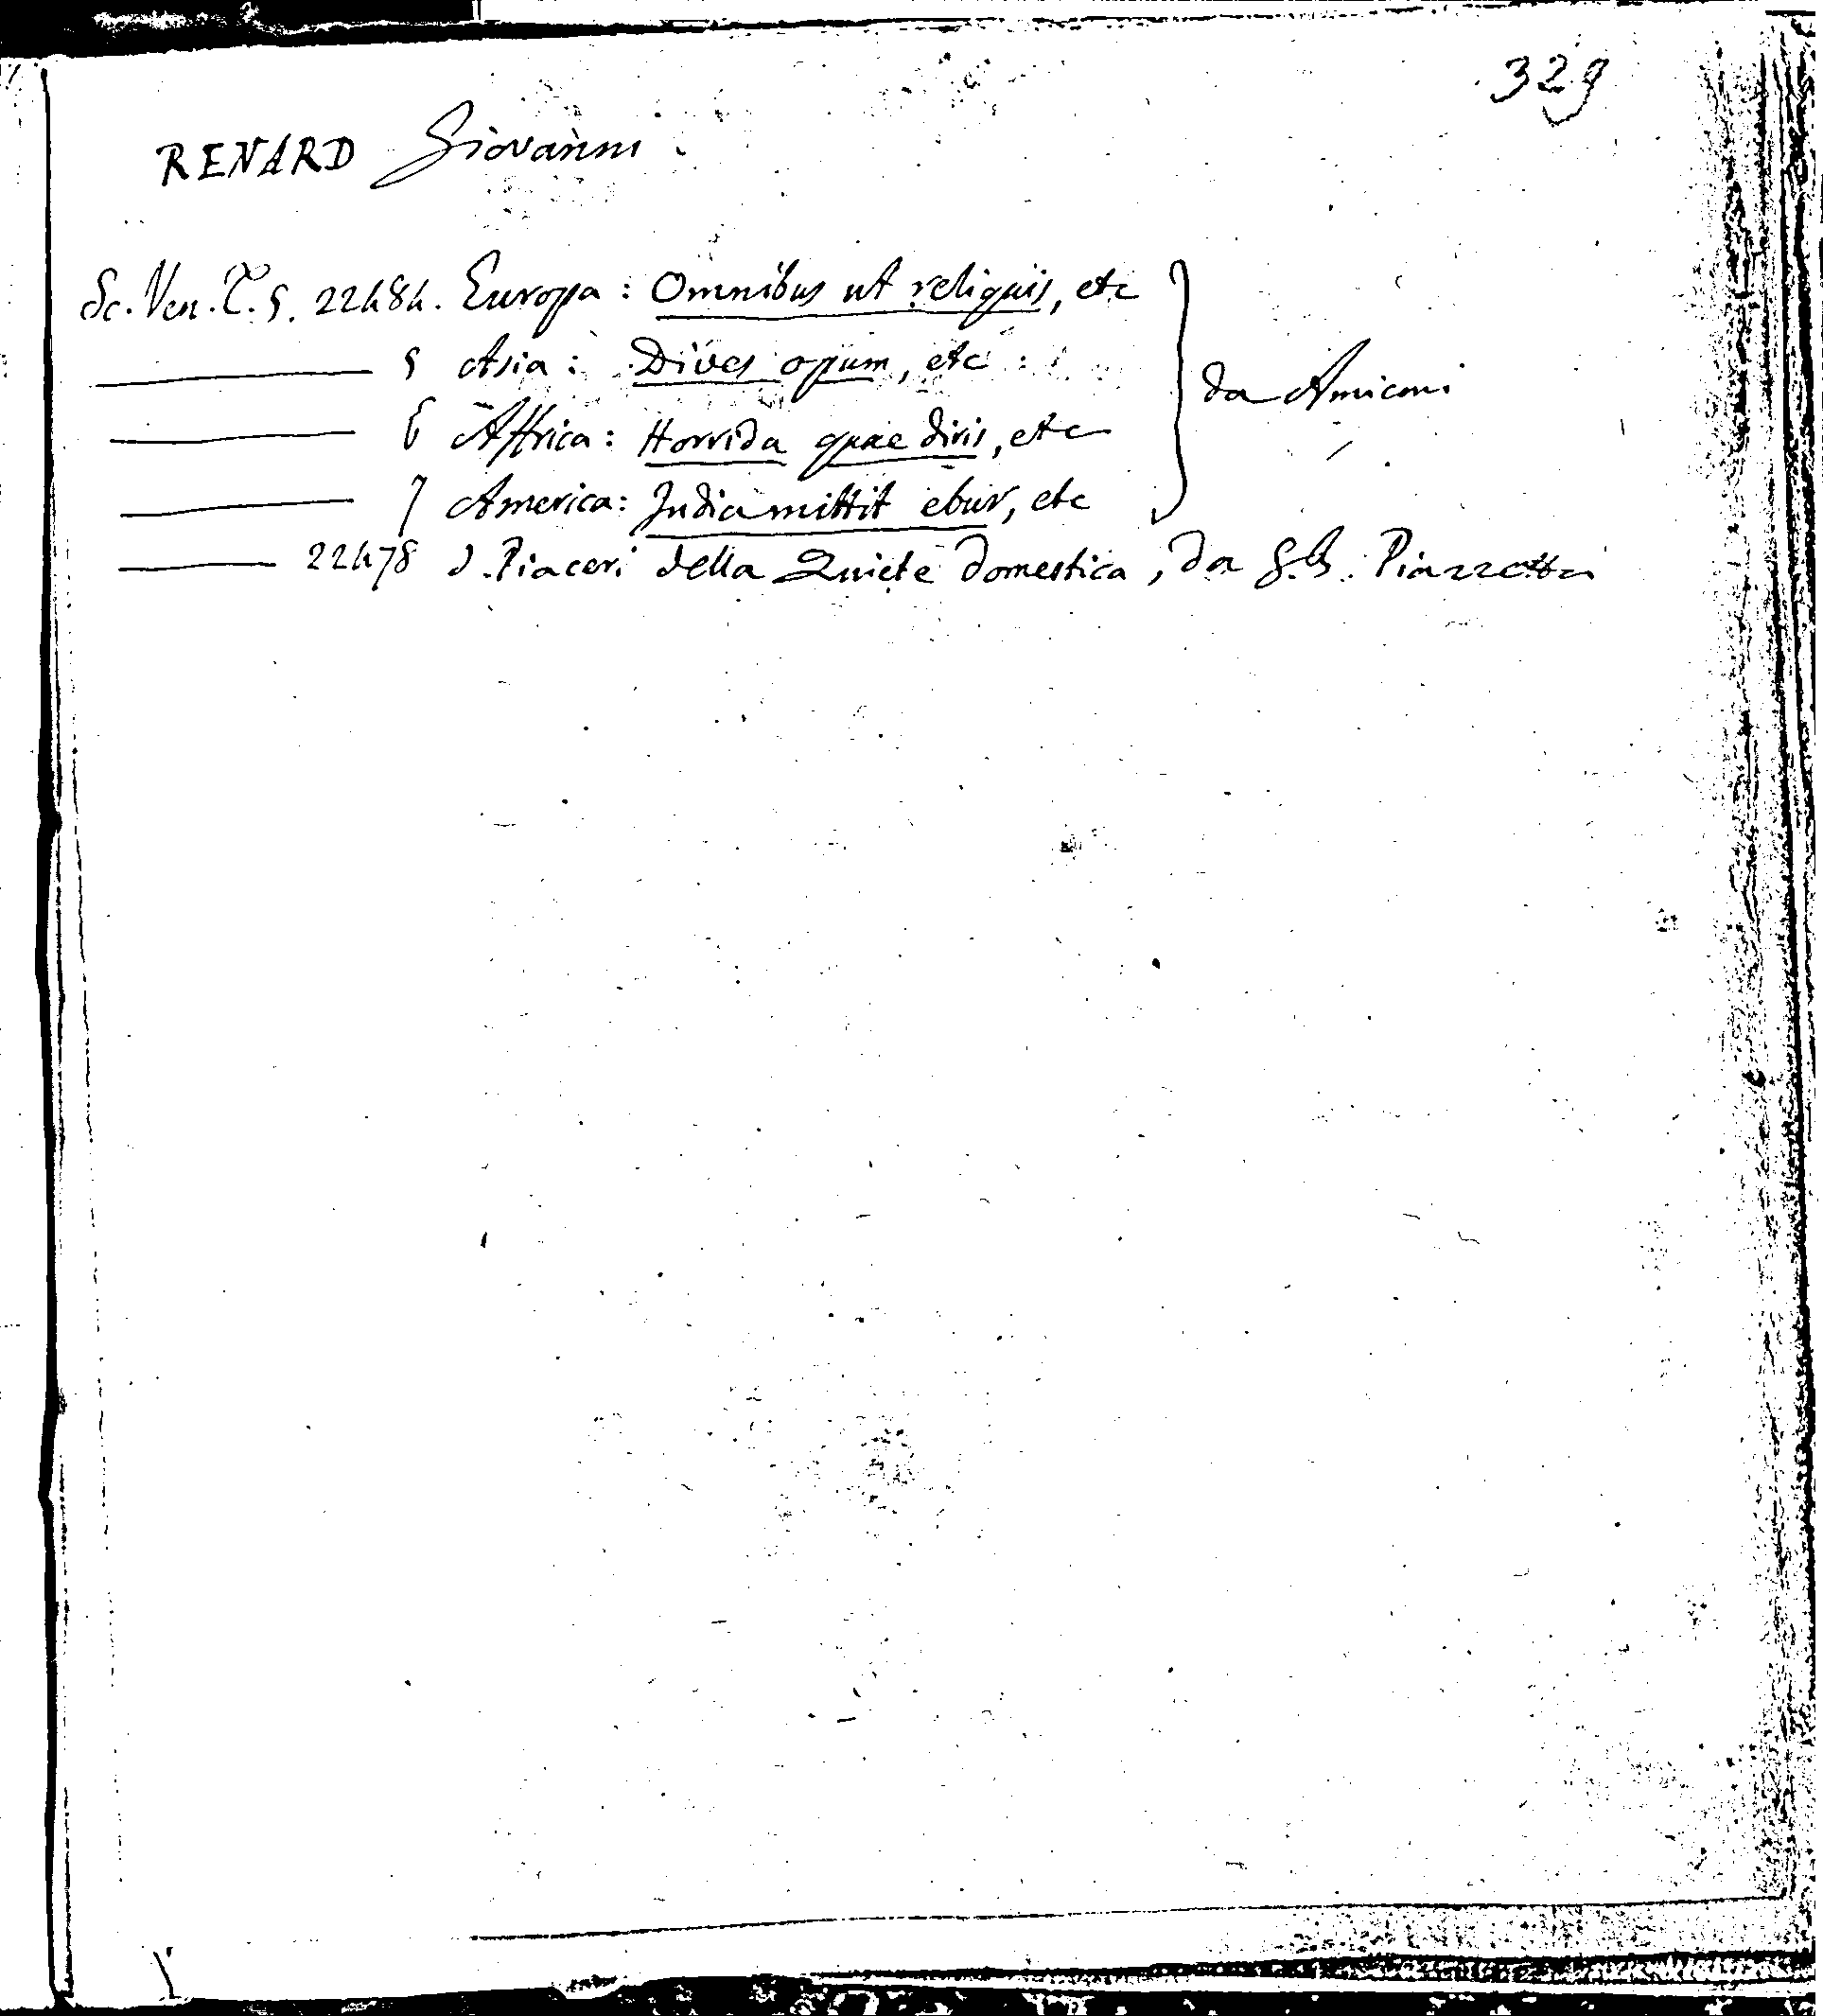 329
RENARD Giovanni
Sc. Ven. T. 5. 22484. Europa: Omnibus ut reliquis, etc
5 Asia: Dives opum, etc
6 Affrica: Horrida quae diris, etc
da Amiconi
7 America: India mittit ebur, etc
22478 I. Piaceri della Quiete domestica, da G.B. Piazzetta